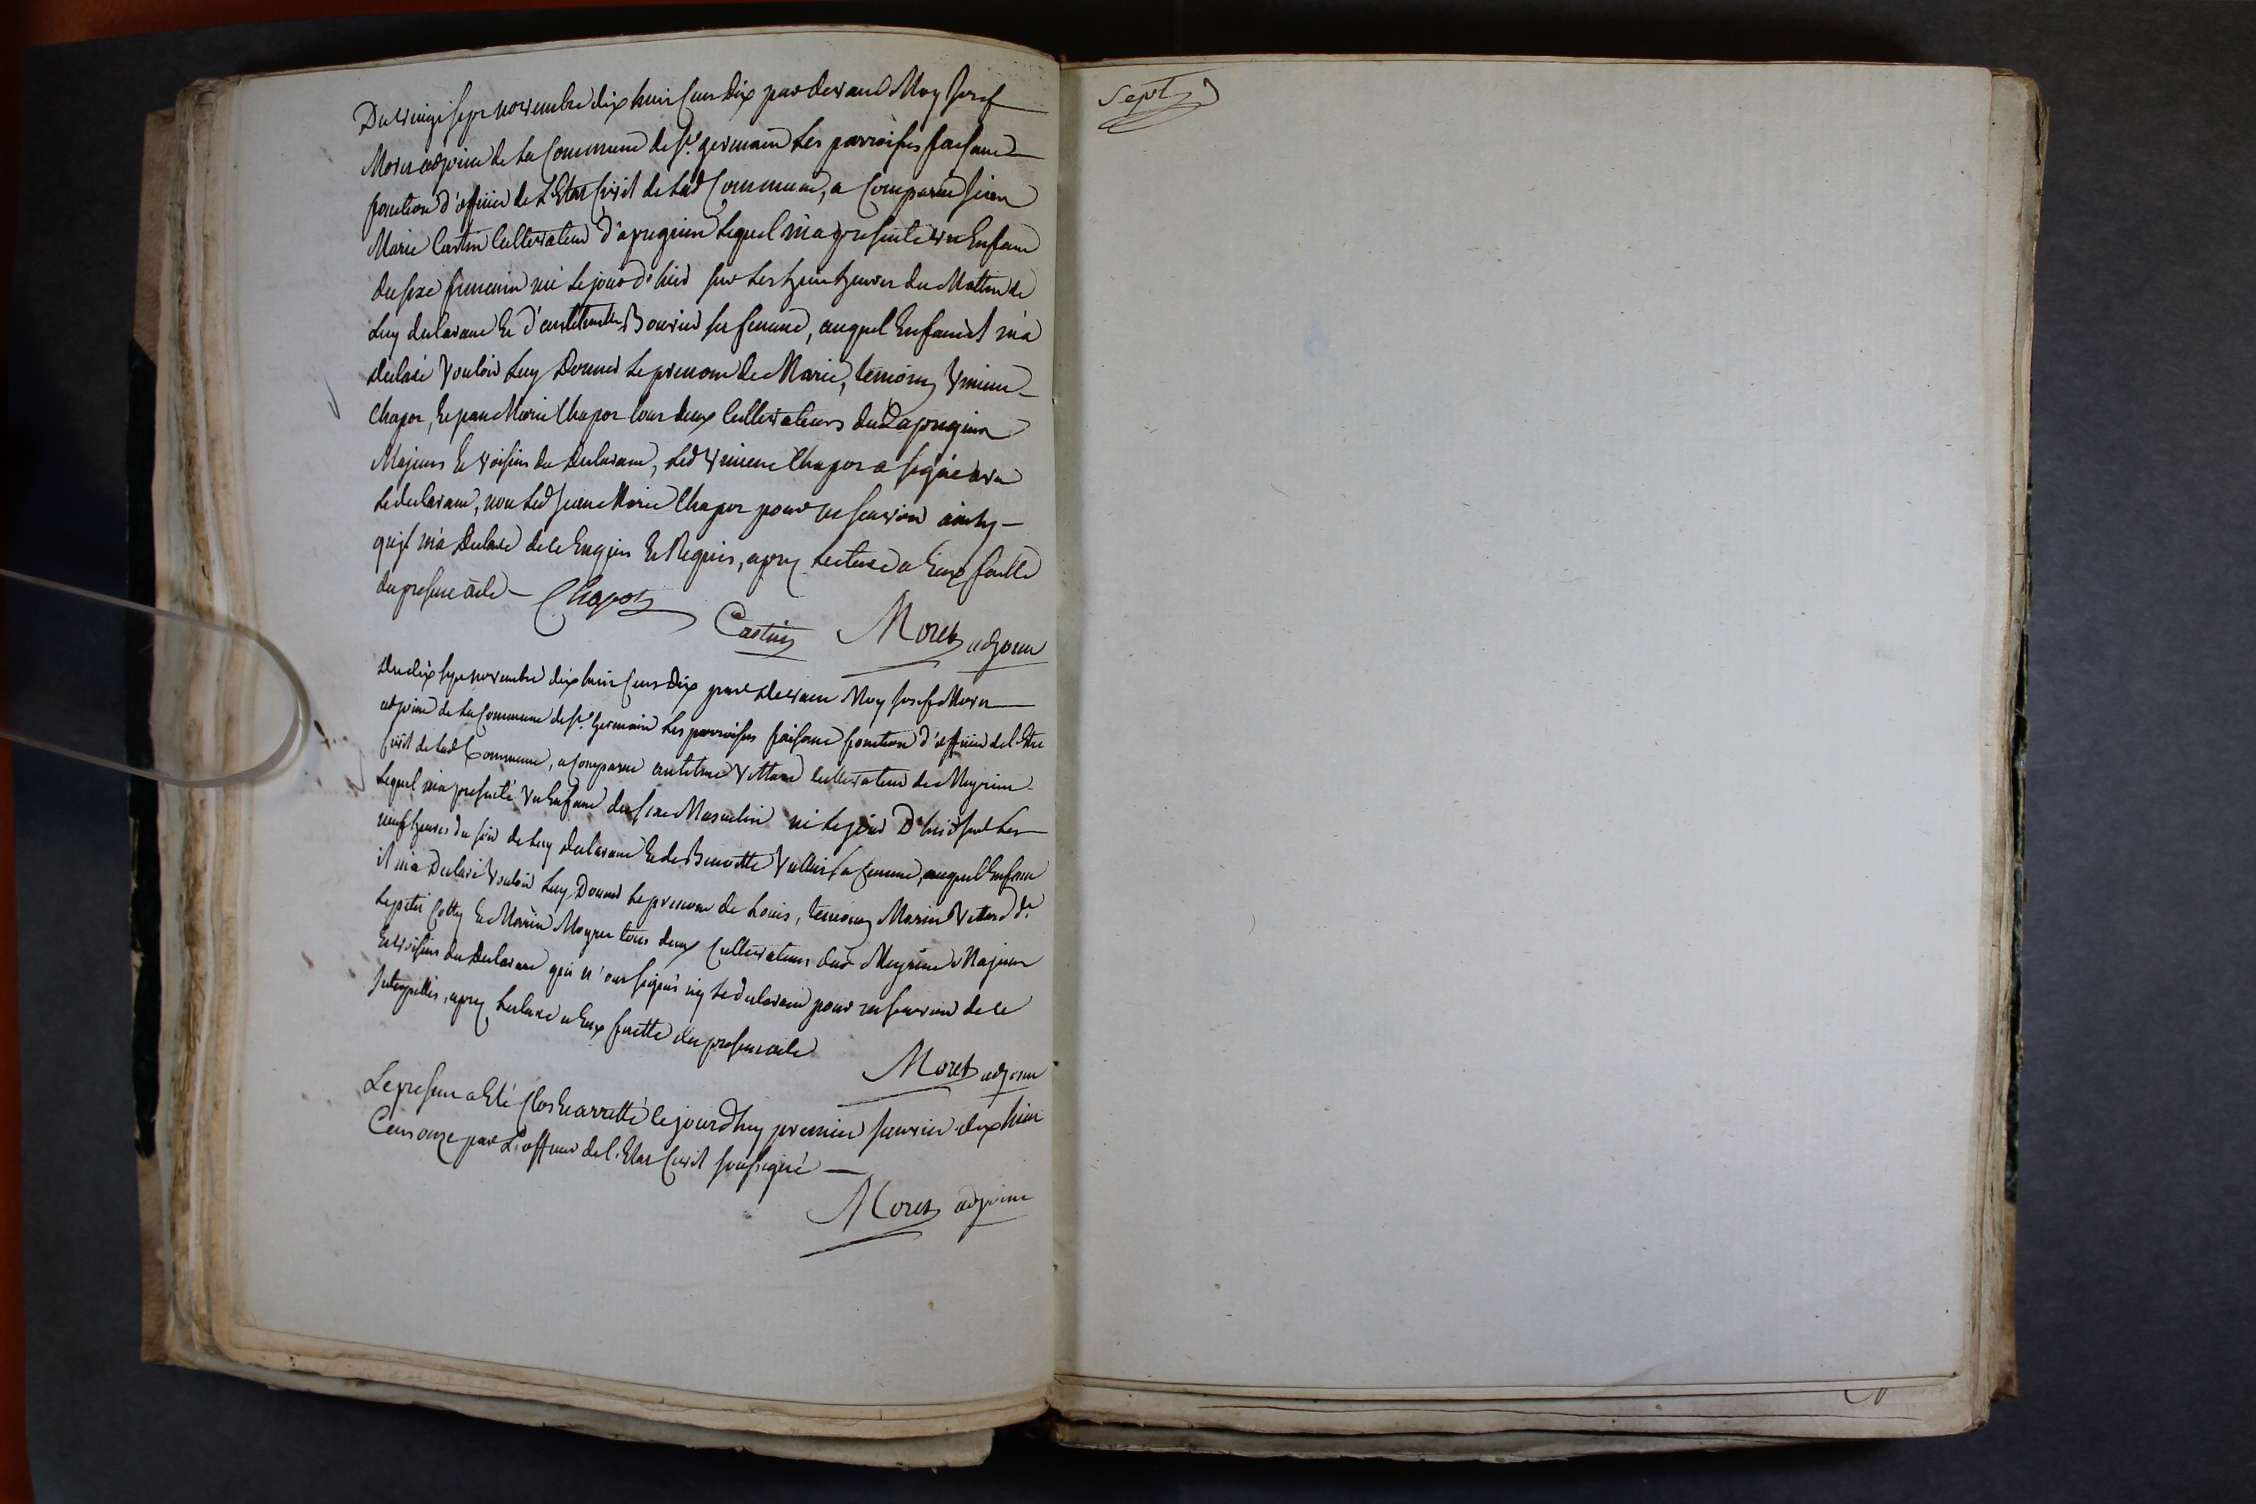 Du vingt sept novembre dix huit Cens Dix par devant Moy Josef
Moret adjoint de La Commune de St. germain Les parroisses faisant
fonction d'officier de L'Etat Civil de Lad Commune, a Comparu Jean
Marie Castin Cultivateur d'apregnin Lequel m'a presenté un Enfant
du sexe feminin né Le jour d'hier sur Les huit heures du Mattin de
Luy declarant Et d' Bovier sa femme, auquel Enfant il m'a
declaré Vouloir Luy Donner Le prenom de Marie, temoins
Chapot, Et jean Marie Chapot tous deux Cultivateurs dud apregnin
Majeurs Et Voisins du declarant, Led Chapot a signé avec
Le declarant, non Led Jean Marie Chapot pour ne savoir ainsy
qu'il m'a Declaré de ce Enquis Et Requis, apres Lecture a Eux faitte
du present acte - Chapot
Castin Moret adjoint
Du dix sept novembre dix huit Cens Dix par devant Moy Josef Moret
adjoint de La Commune de St. Germain Les parroisses faisant fonction d'officier de l'Etat
Civil de Lad Commune, a Comparu antelme Vettard Cultivateur de Meyrieu
Lequel m'a presenté Un Enfant du sexe Masculin né Le jour D'hier sur Les
neuf heures du soir de Luy declarant Et de Benoitte sa femme, auquel Enfant
il m'a Declaré Vouloir Luy Donner Le prenom de Louis, temoins Marin Vettard dt.
Le petit Cotty Et Marin tous deux Cultivateurs dud Meyrieu Majeurs
Et Voisins du Declarant qui n'ont signés ny Le declarant pour ne savoir de ce
Interpellés, apres Lecture a Eux faitte du present acte
Moret adjoint
Le present a Eté Clos Et arretté le jourd'huy premier Janvier dix huit
Cens onze par L'officier de l'Etat Civil soussigné -
Moret adjoint
Sept